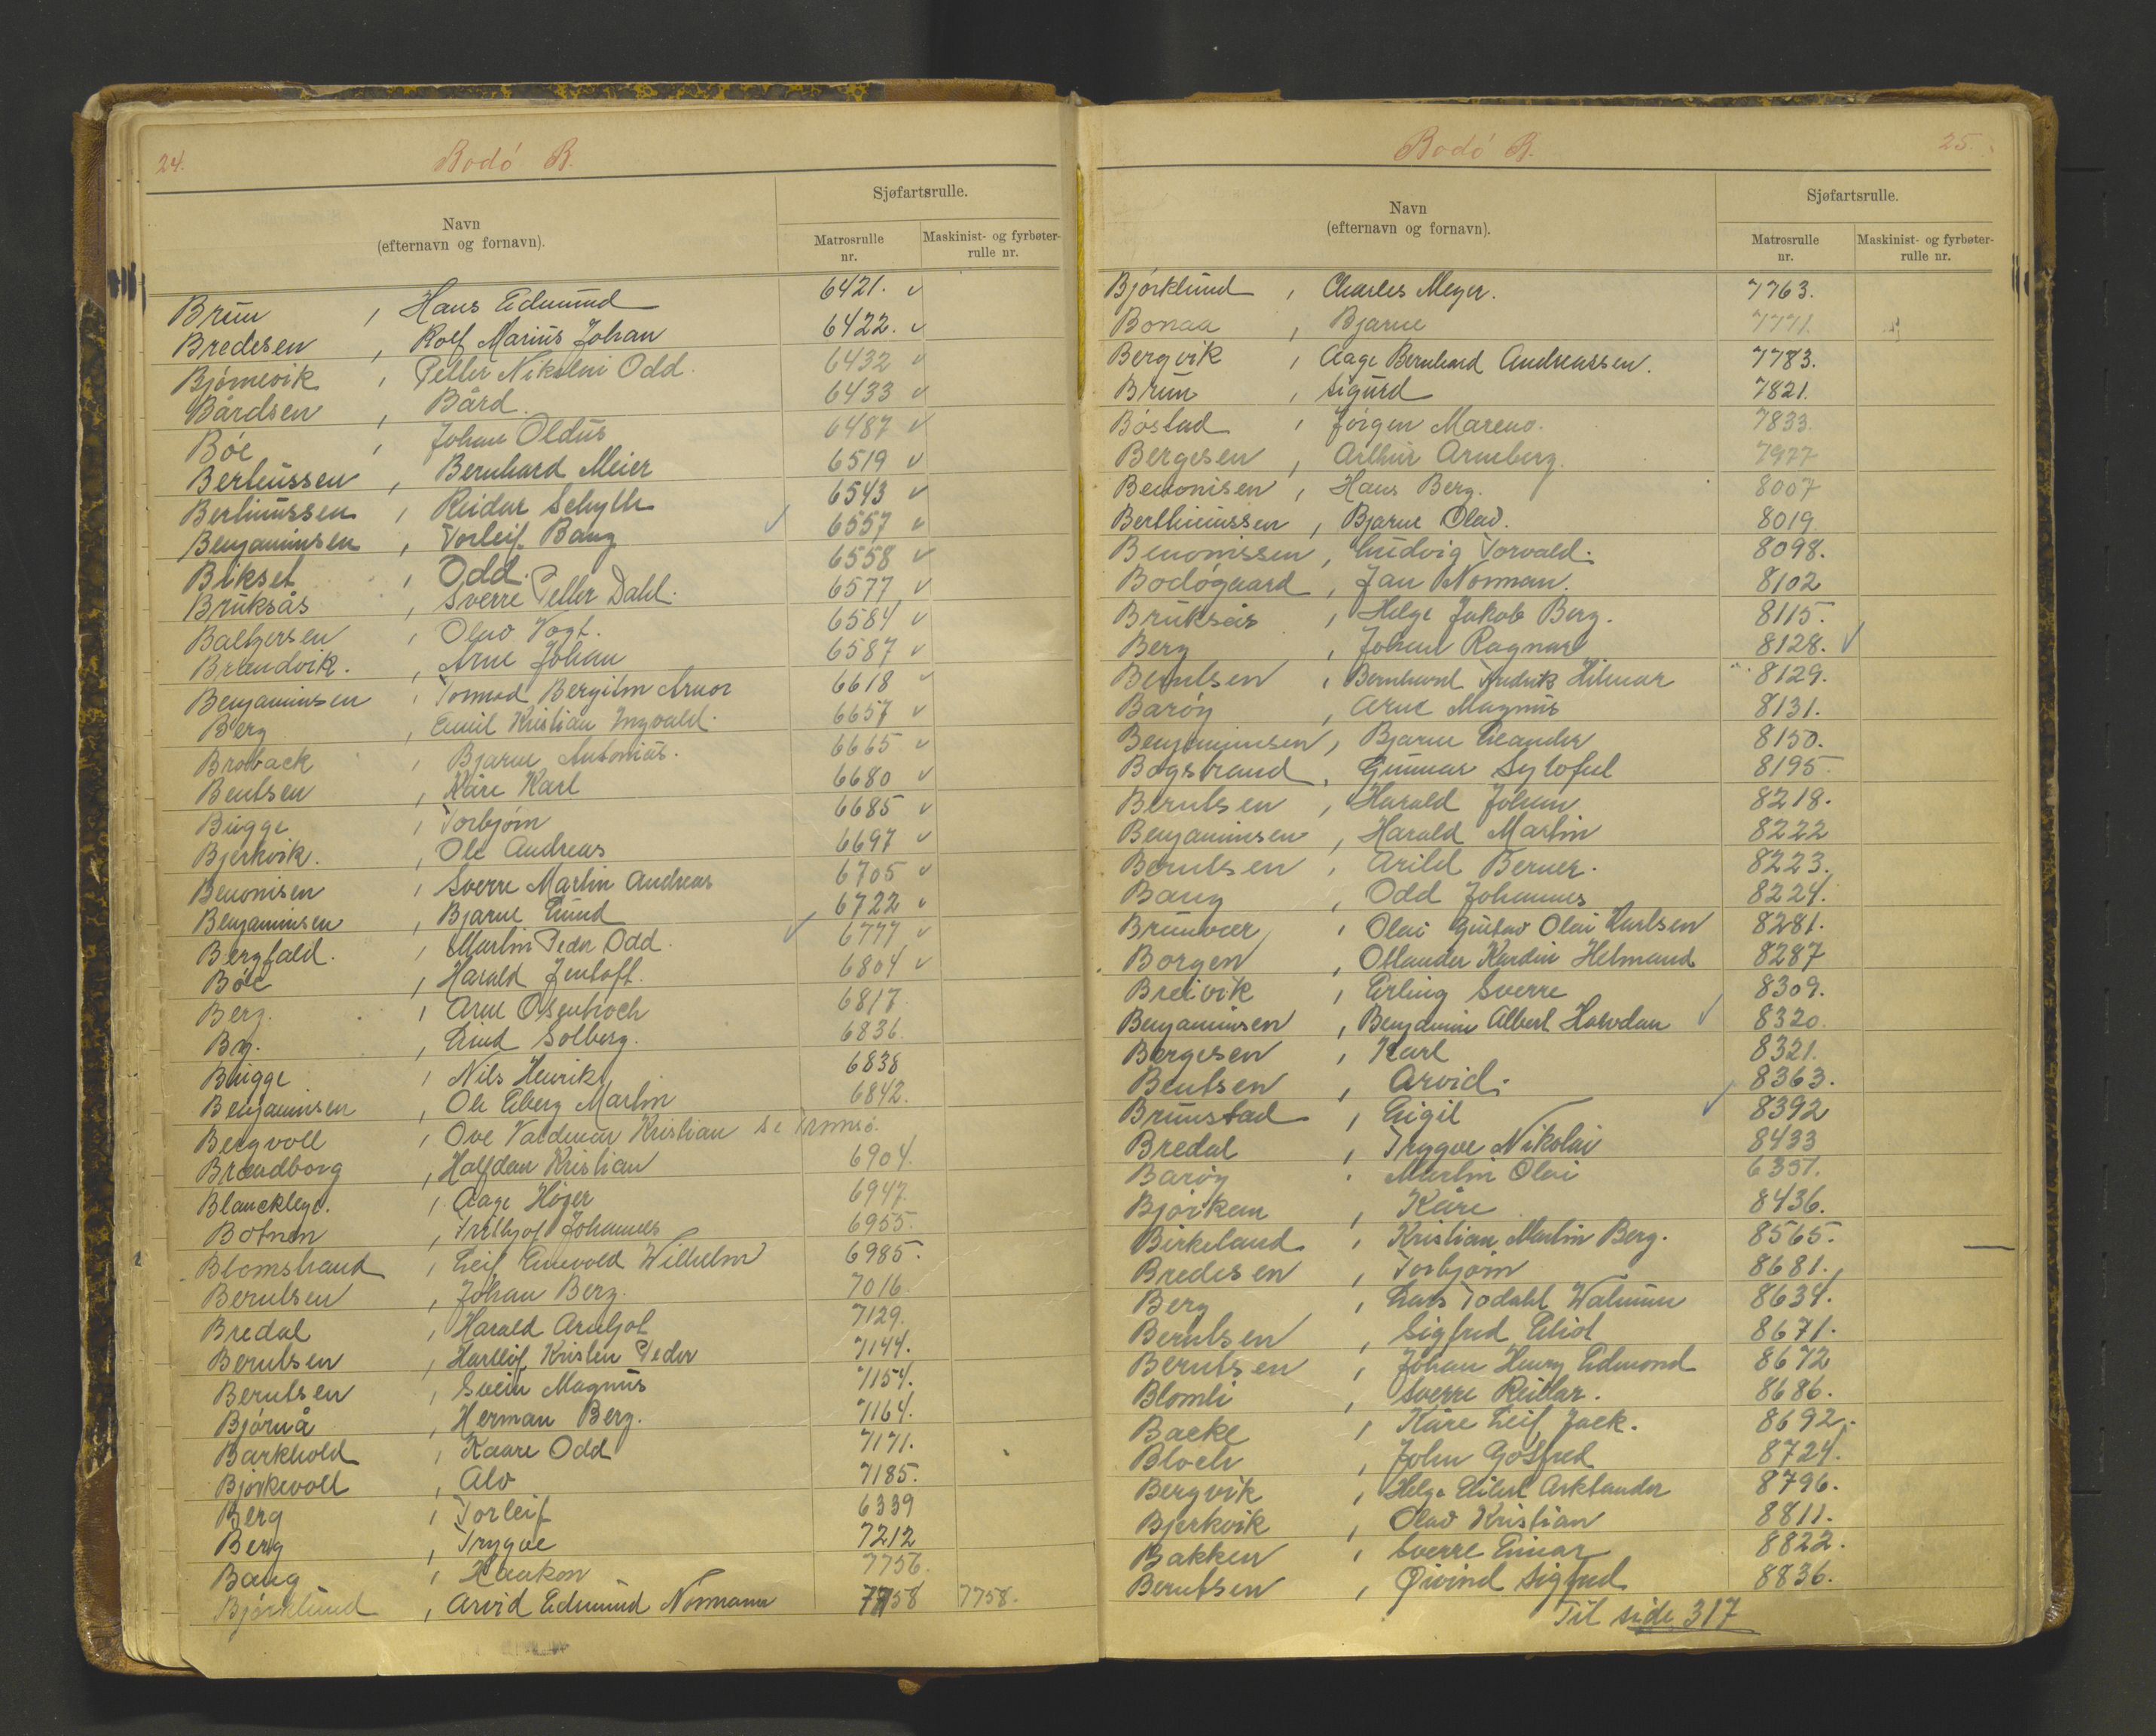 24.
Bodó B.
Sjøfartsrulle.
Navn
(efternavn og fornavn).
Matrosrulle
nr.
Maskinist- og fyrbøter-
rulle nr.
Brun, Hans Edmund 6421. ✓
Bredesen, Rolf Marius Johan 6422. ✓
Bjørnevik, Petter Nikolai Odd. 6432 ✓
Bårdsen, Bård. 6433 ✓
Bóe, Johan Oldus 6487 ✓
Berteussen, Bernhard Meier 6519 ✓
Bertinussen, Reidar Schytte 6543 ✓
Benjaminsen, Torleif Bang ✓ 6557 ✓
Bikset, Odd. 6558 ✓
Bruksås, Sverre Petter Dahl. 6577 ✓
Baltzersen, Olav Vogt. 6584 ✓
Brandvik., Arne Johan 6587 ✓
Benjaminsen, Tormod Bergiton Arnor 6618 ✓
Berg, Emil Kristian Ingvald. 6657 ✓
Broback, Bjarne Antonius. 6665 ✓
Bentsen, Kåre Karl 6680 ✓
Bugge, Torbjørn 6685 ✓
Bjerkvik., Ole Andreas 6697 ✓
Benonisen, Sverre Martin Andreas 6705 ✓
Benjaminsen, Bjarne Lund 6722 ✓
Bergfald., Martin Peder Odd. ✓ 6777 ✓
Bóe, Harald Jentoft. 6804 ✓
Berg., Arne Osenbroch 6817.
By., Lind Solberg. 6836.
Bugge, Nils Henrik 6838
Benjaminsen, Ole Eberg Martin 6842.
Bergvoll, Ove Valdemar Kristian se Tromsø.
Brandborg, Halfdan Kristian 6904.
Blanckleye., Aage Højer 6947.
Botnen, Fritbjof Johannes 6955.
Blomstrand, Leif Enevold Wilhelm 6985.
Berntsen, Johan Berg. 7016.
Bredal, Harald Arnljot 7129.
Berntsen, Hartleif Kristen Peder 7144.
Berntsen, Svein Magnus 7154.
Bjórnå, Herman Berg. 7164.
Barkhold, Kaare Odd 7171.
Bjórkevoll, Alv 7185.
Berg, Torleif 6339
Berg, Trygve 7212
Bang, Haakon 7756.
Bjórklund, Arvid Edmund Normann 7758 7758.
Bodó B.
25.
Sjøfartsrulle.
Navn
(efternavn og fornavn).
Matrosrulle
nr.
Maskinist- og fyrbøter-
rulle nr.
Bjórklund, Charles Meyer. 7763.
Bonaa, Bjarne 7771.
Bergvik, Aage Bernhard Andreassen. 7783.
Brun, Sigurd 7821.
Bóstad, Jórgen Mareno. 7833.
Bergesen, Arthur Arneberg. 7977
Benonisen, Hans Berg. 8007
Berthinussen, Bjarne Olav. 8019.
Benonissen, Ludvig Torvald. 8098.
Bodógaard, Jan Norman. 8102
Bruksås, Helge Jakob Berg. 8115.
Berg, Johan Ragnar 8128. ✓
Berntsen, Bernhard Fredrik Hilmar 8129.
Barøy, Arne Magnus 8131.
Benjaminsen, Bjarne Leander 8150.
Bogstrand, Gunnar Syloful 8195.
Berntsen, Harald Johan 8218.
Benjaminsen, Harald Martin 8222
Berntsen, Arild Berner. 8223.
Bang, Odd Johannes 8224.
Brunvær, Olai Gustav Olai Karlsen 8281.
Borgen, Ottander Kardin Helmand 8287
Breivik, Erling Sverre 8309.
Benjaminsen, Benjamin Albert Halvdan ✓ 8320.
Bergesen, Karl 8321.
Bentsen, Arvid. 8363.
Brunstad, Eigil ✓ 8392
Bredal, Trygve Nikolai 8433
Barøy, Martin Olai 6351.
Bjórkan, Kåre 8436.
Birkeland, Kristian Martin Berg. 8565.
Bredesen, Torbjórn 8681.
Berg, Lars Todahl Walmann 8634.
Berntsen, Sigfred Eliot 8671.
Berntsen, Johan Henry Edmond 8672
Blomli, Sverre Reidar. 8686.
Backe, Kåre Leif Jack. 8692.
Bloch, John Gotfred 8724.
Bergvik, Helge Eilert Arktander 8796.
Bjerkvik, Olav Kristian 8811.
Bakken, Sverre Einar 8822.
Berntsen, Øivind Sigfred 8836.
Til side 317